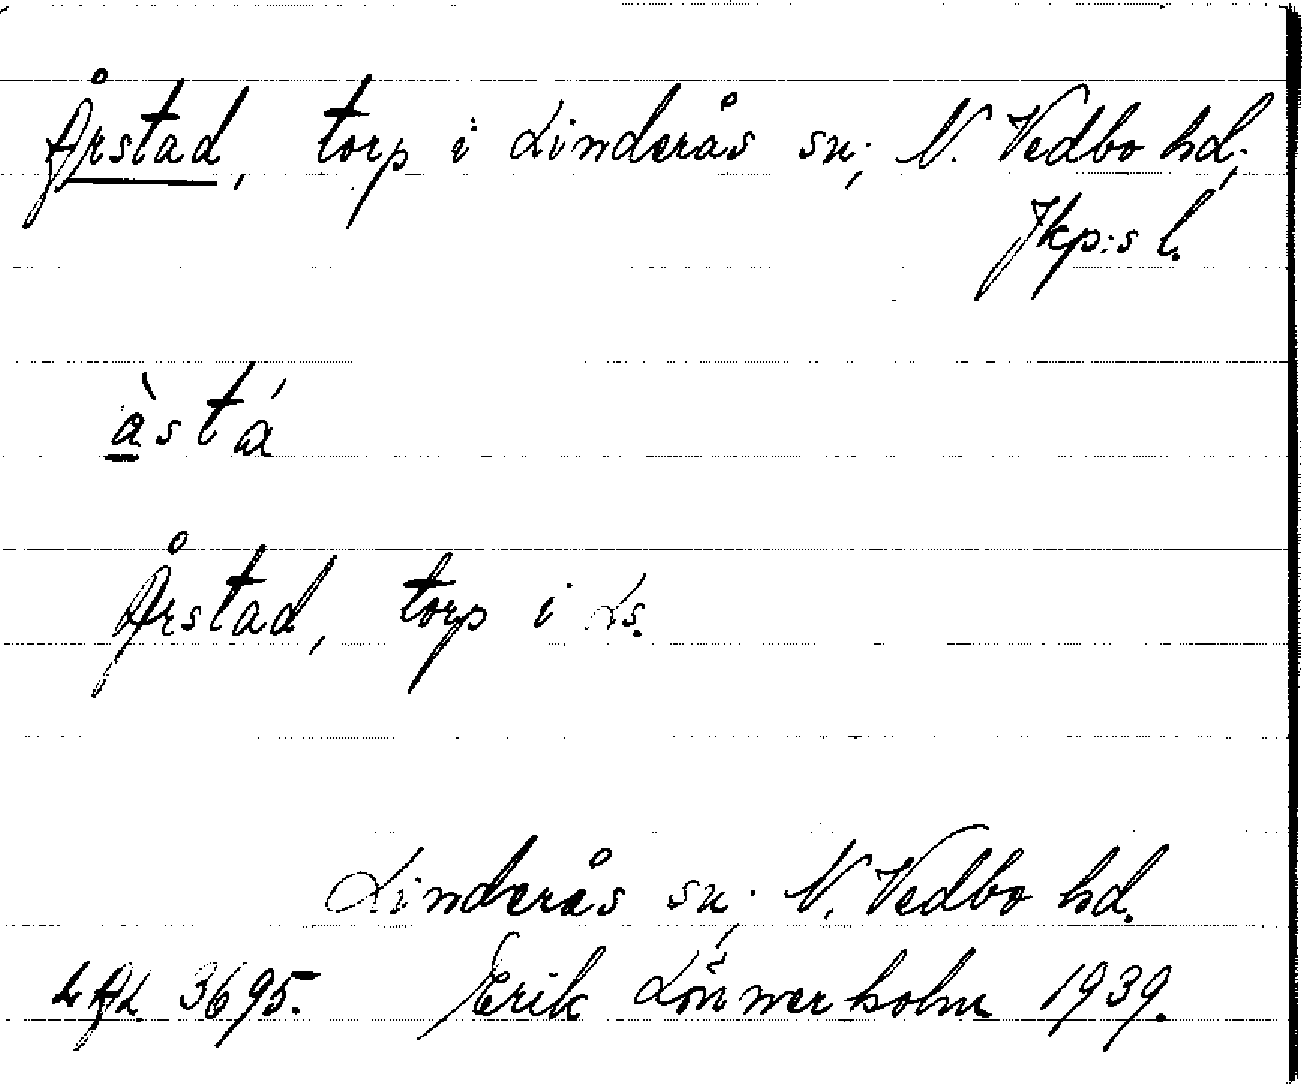 Årstad, torp i Linderås sn., N. Vedbo hd.,
Jkp:s l.
àstá
Årstad, torp i Ls.
Linderås sn., N. Vedbo hd.
3695. Erik Lönnerholm 1939.